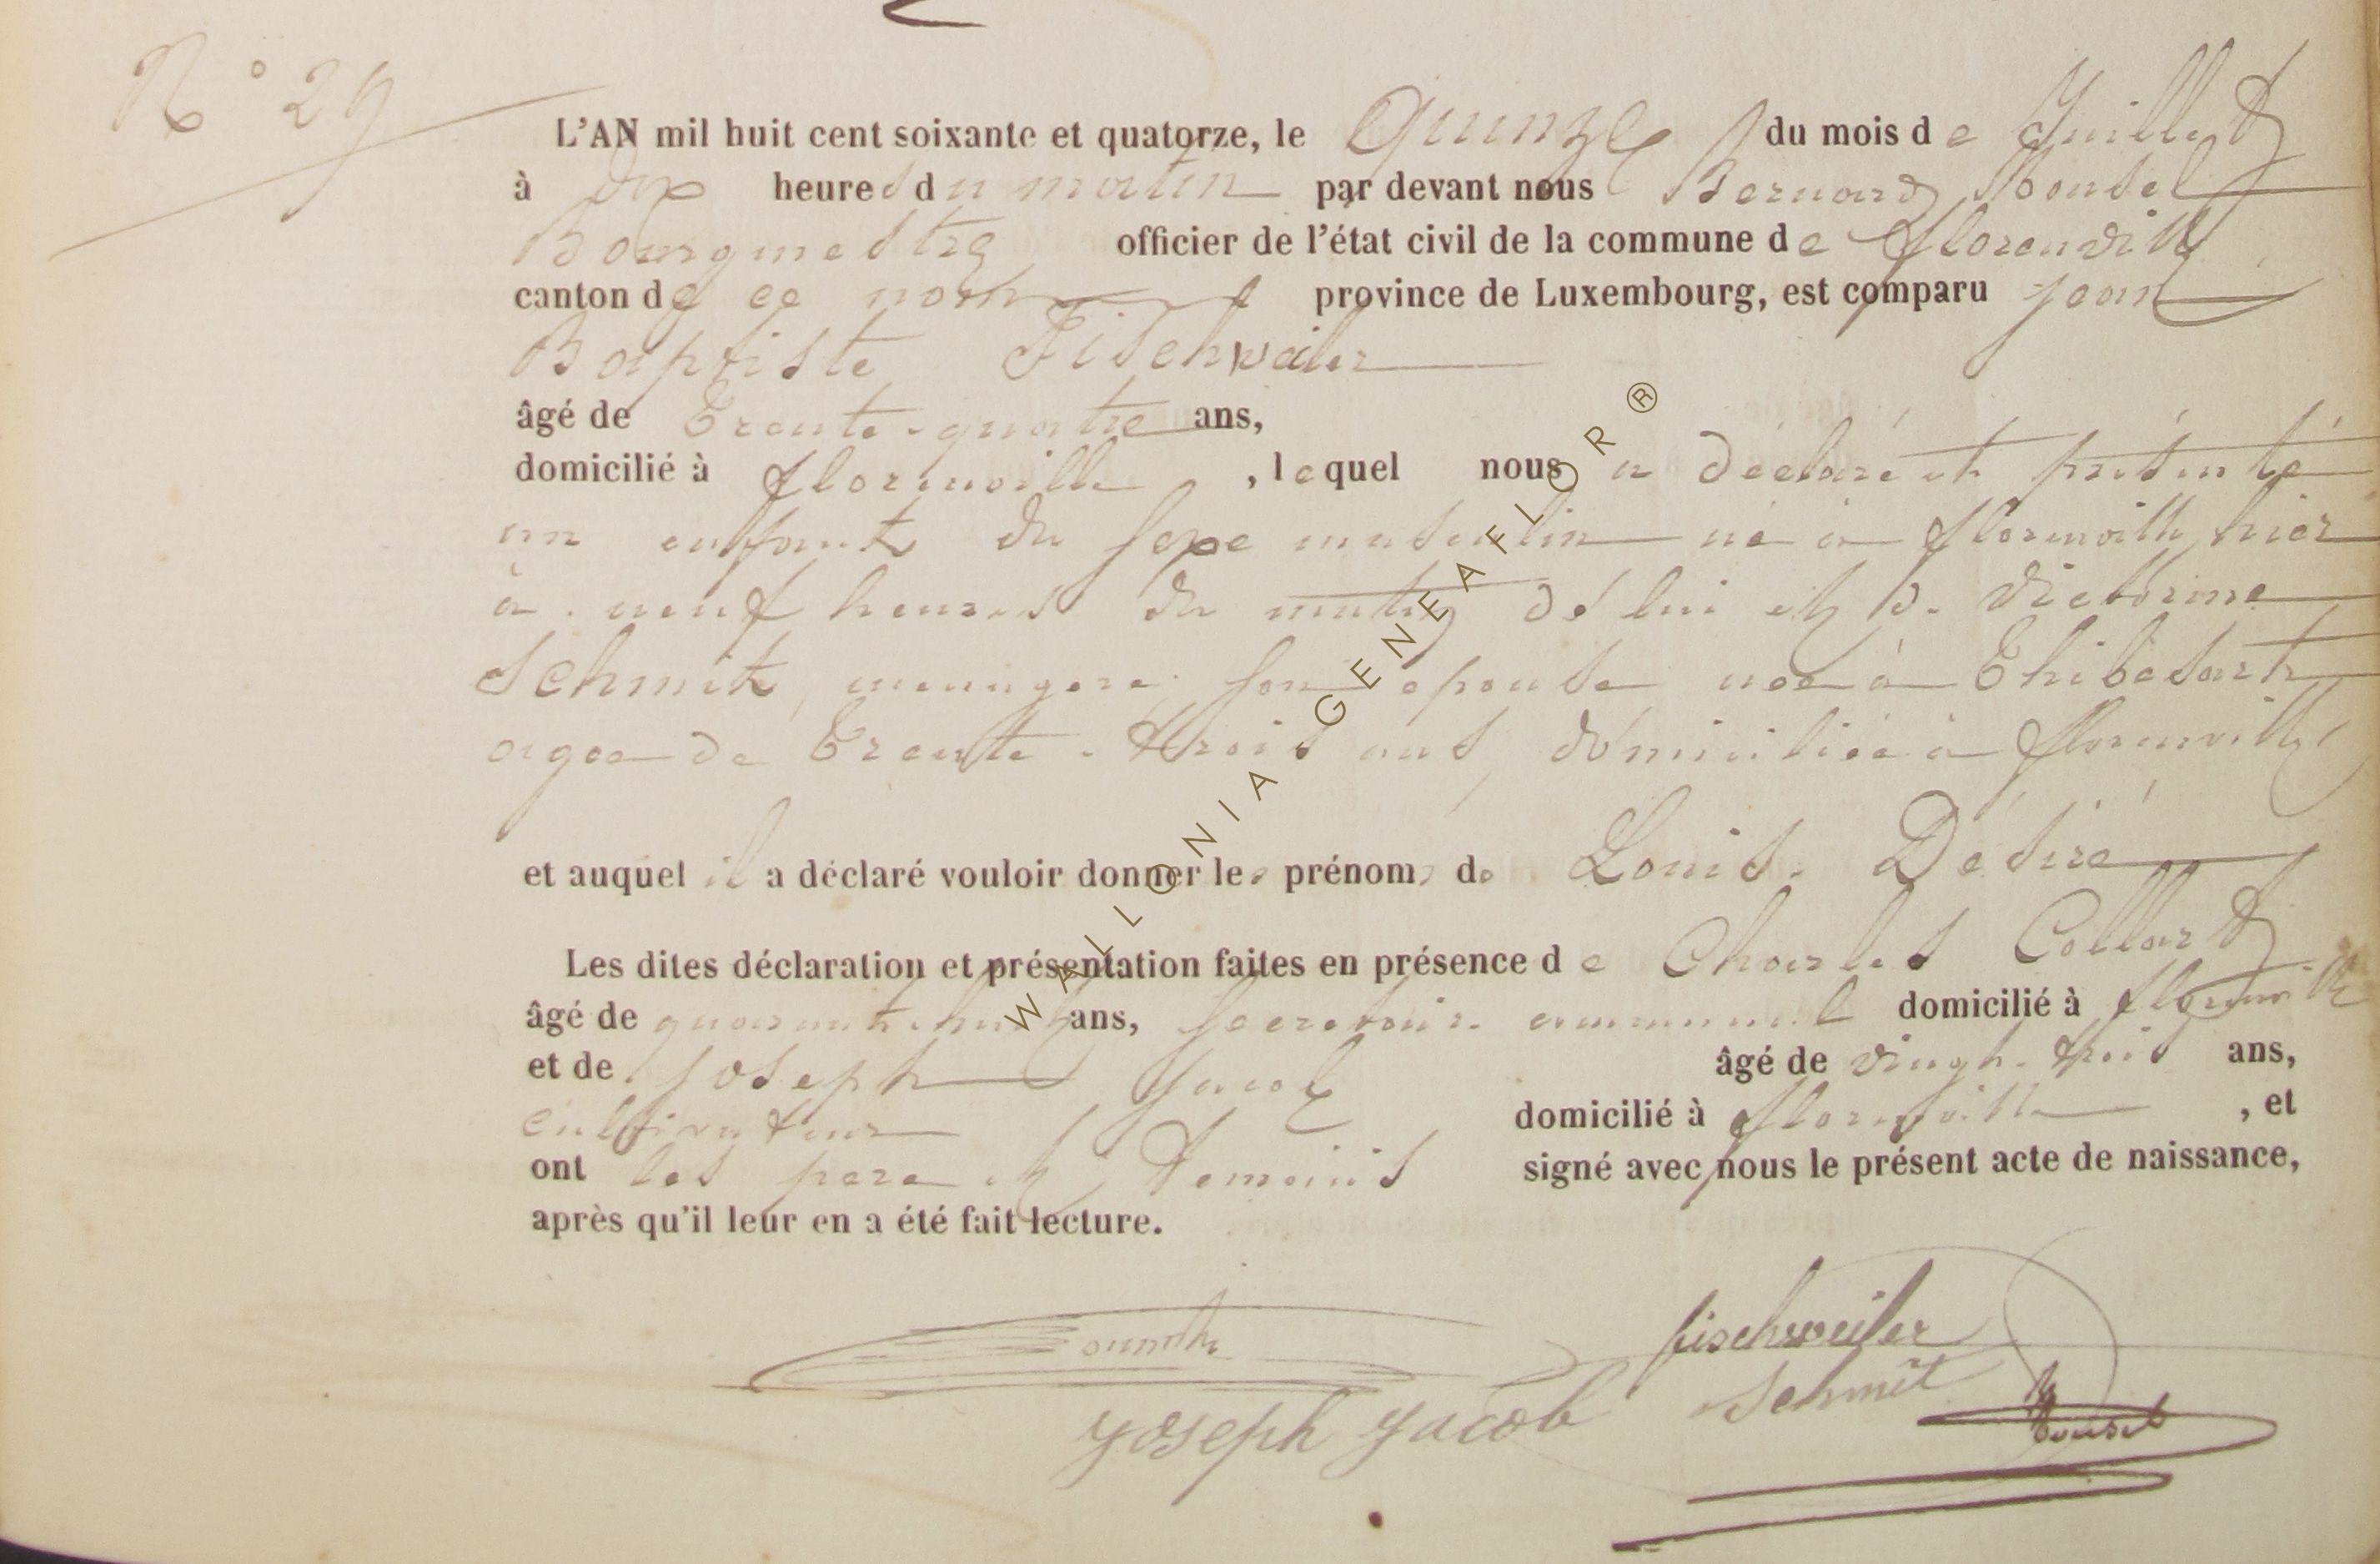 N° 29
L'AN mil huit cent soixante et quatorze, le Quinze du mois de Juillet
à dix heures du matin par devant nous Bernard
Bourgmestre officier de l'état civil de la commune de florenville
canton de ce nom province de Luxembourg, est comparu jean
Baptiste Fischweiler
âgé de Trente-quatre ans,
domicilié à florenville, lequel nous a déclaré et présenté
un enfant du sexe masculin né à florenville hier
à neuf heures du matin de lui et de Victorine
Schmit, menagere, son épouse née à Thibésart
agée de Trente-trois ans, domiciliée à florenville
et auquel il a déclaré vouloir donner les prénoms de Louis. Désiré
Les dites déclaration et présentation faites en présence de Charles Collard
âgé de quarante-huit ans, secretaire communal domicilié à florenville
et de joseph Jacob âgé de vingt-trois ans,
cultivateur domicilié à florenville, et
ont les pere et temoins signé avec nous le présent acte de naissance,
après qu'il leur en a été fait lecture.
fischweiler
Schmit
Joseph Jacob
WALLONIA GENEAFLOR ®